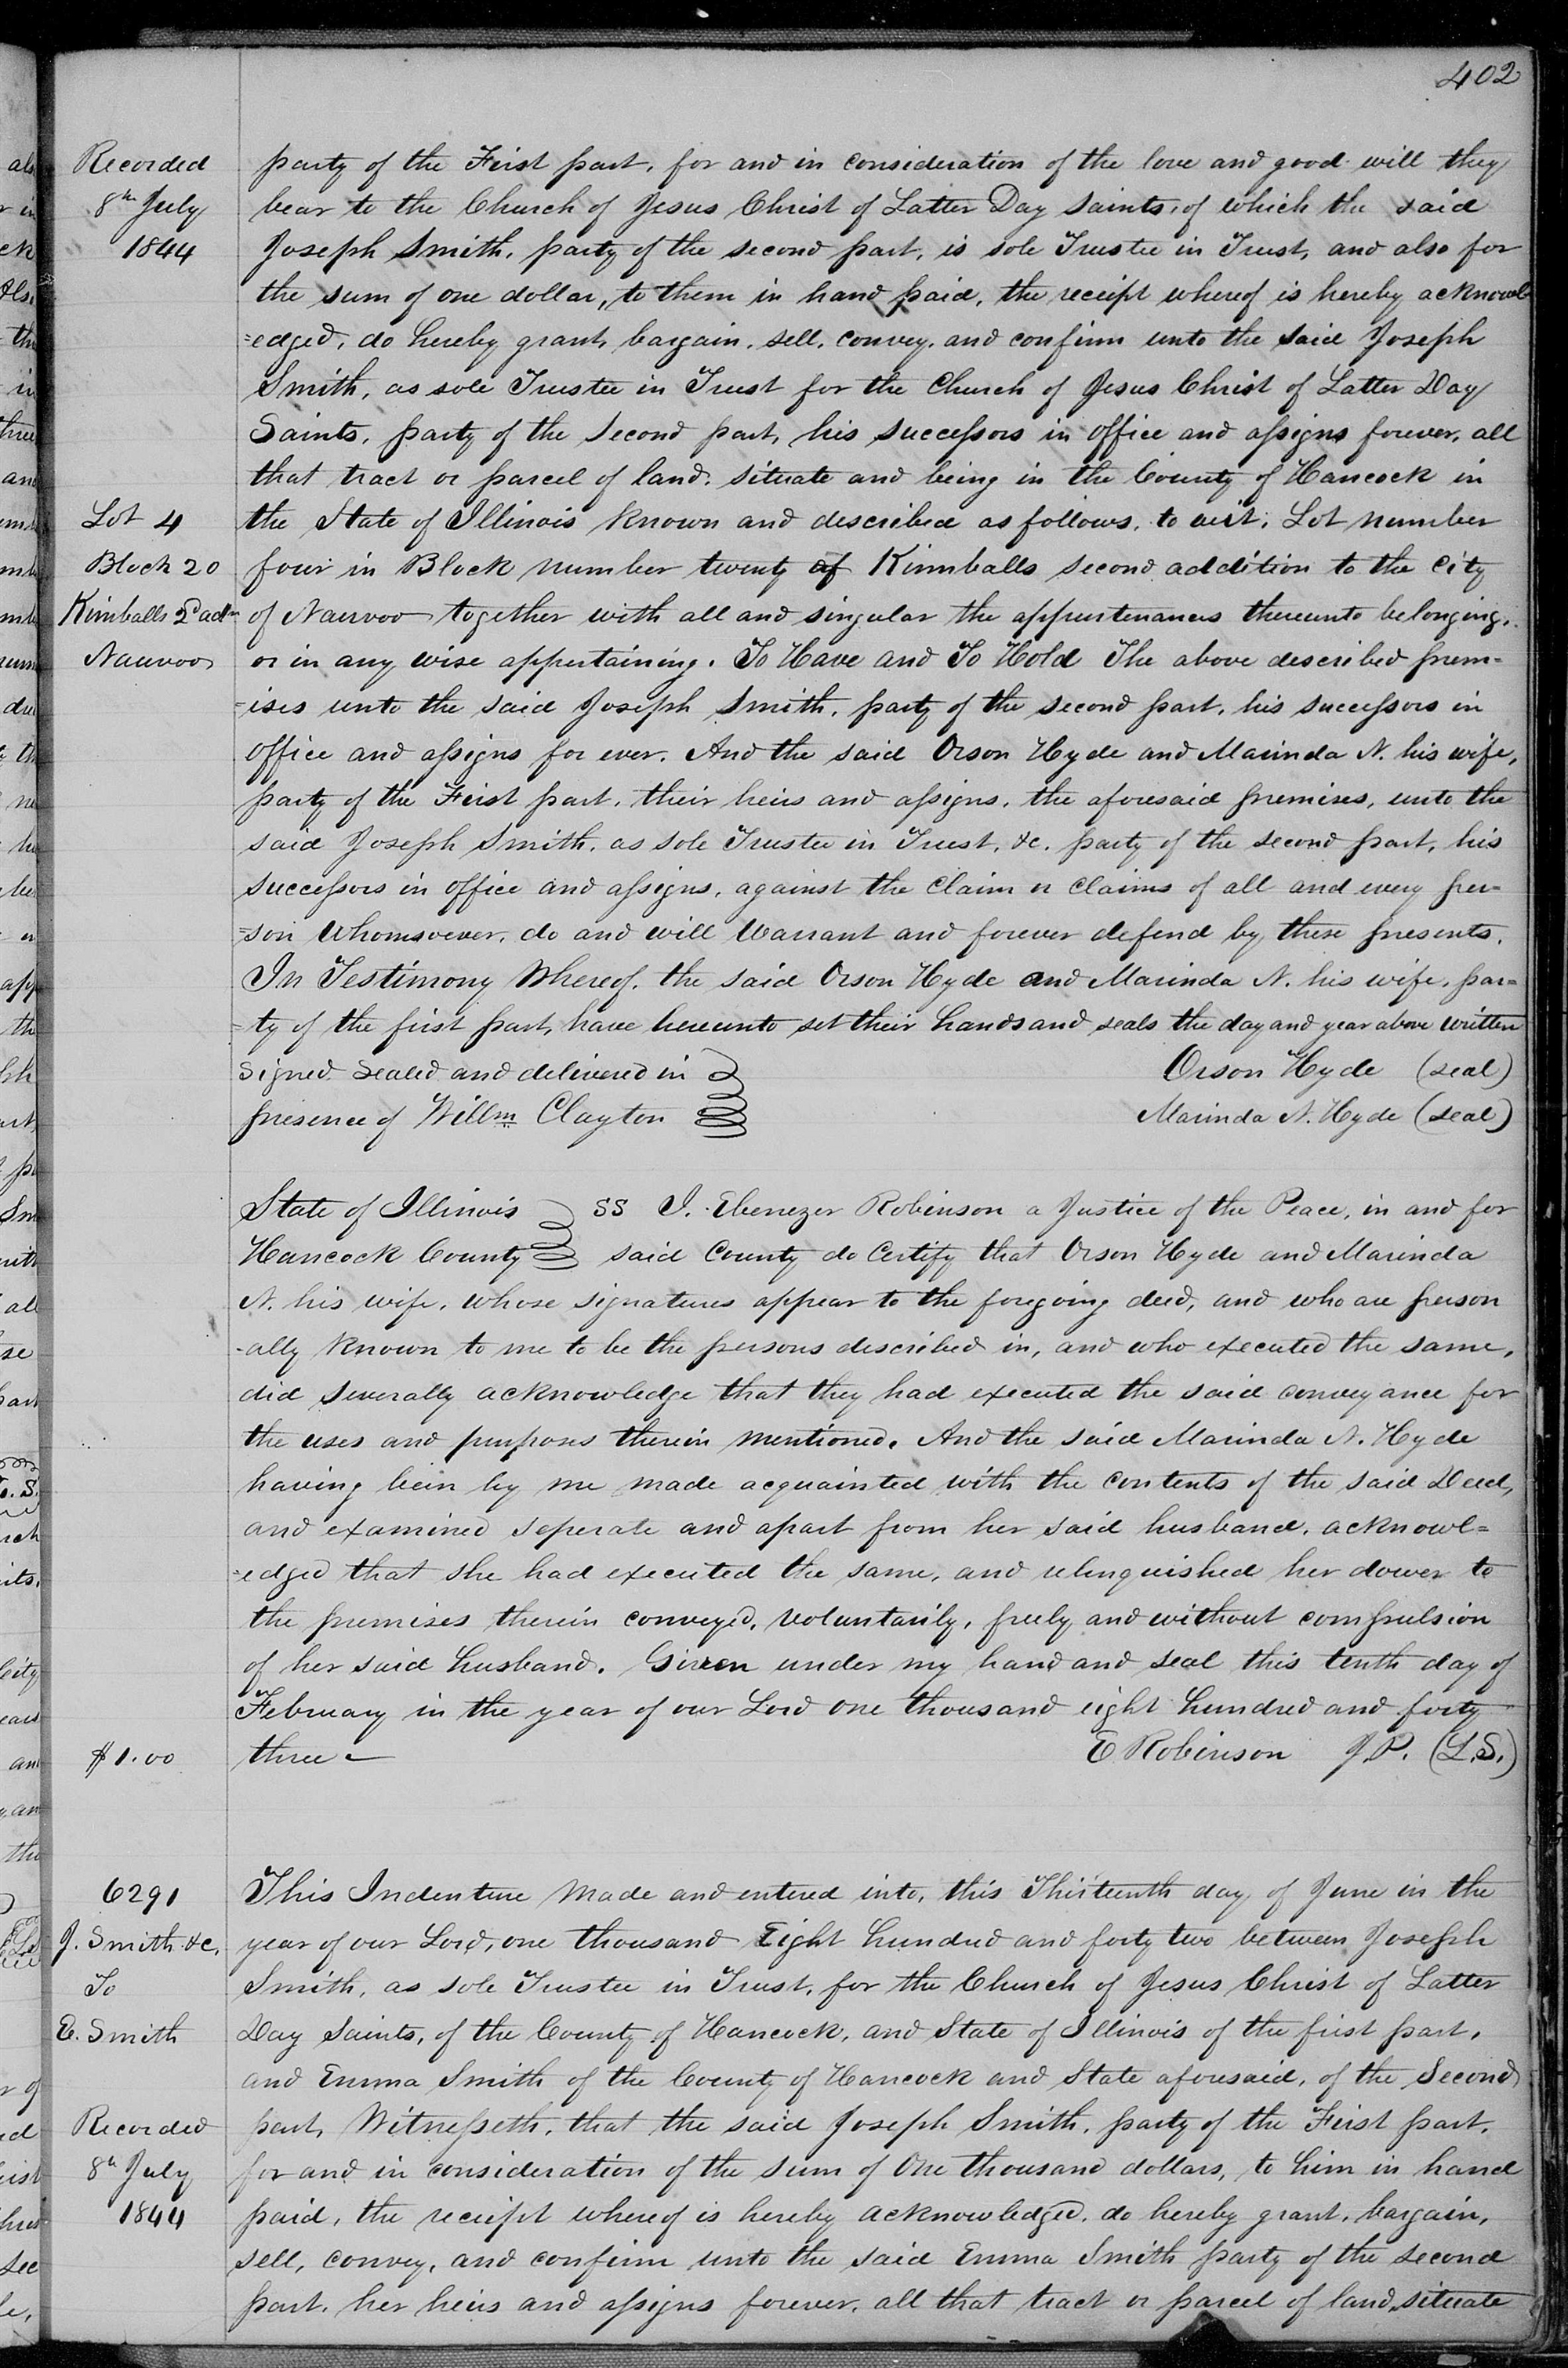 402
Recorded
8th July
1844
party of the First part, for and in consideration of the love and good will they
bear to the Church of Jesus Christ of Latter Day Saints, of which the said
Joseph Smith, party of the second part, is sole Trustee in Trust, and also for
the sum of one dollar, to them in hand paid, the receipt whereof is hereby acknowl
=edged, do hereby grant, bargain, sell, convey, and confirm unto the said Joseph
Smith, as sole Trustee in Trust for the Church of Jesus Christ of Latter Day
Saints, party of the second part, his successors in office and assigns forever, all
that tract or parcel of land, situate and being in the County of Hancock in
Lot 4
Block 20
Kimballs 2d adn
Nauvoo
the State of Illinois known and described as follows, to wit, Lot number
four in Block number twenty of Kimballs second addition to the City
of Nauvoo together with all and singular the appurtenances thereunto belonging,
or in any wise appertaining. To Have and To Hold The above described prem=
=ises unto the said Joseph Smith, party of the second part, his successors in
office and assigns for ever. And the said Orson Hyde and Marinda N. his wife,
party of the First part, their heirs and assigns, the aforesaid premises, unto the
said Joseph Smith, as sole Trustee in Trust, &c. party of the second part, his
successors in office and assigns, against the Claim or Claims of all and every per=
=son Whomsoever, do and will Warrant and forever defend by these presents.
In Testimony Whereof, the said Orson Hyde and Marinda N. his wife, par=
=ty of the first part, have hereunto set their hands and seals the day and year above written
signed sealed and delivered in
presence of Willm Clayton
Orson Hyde (seal)
Marinda N. Hyde (seal)
State of Illinois
Hancock County
SS I. Ebenezer Robinson a Justice of the Peace, in and for
said County do Certify that Orson Hyde and Marinda
N. his wife, whose signatures appear to the foregoing deed, and who are person
-ally known to me to be the persons described in, and who executed the same,
did severally acknowledge that they had executed the said conveyance for
the uses and purposes therein mentioned. And the said Marinda N. Hyde
having been by me made acquainted with the contents of the said Deed,
and examined seperate and apart from her said husband, acknowl=
=edged that she had executed the same, and relinquished her dower to
the premises therein conveyed, voluntarily, freely and without compulsion
of her said husband. Given under my hand and seal this tenth day of
February in the year of our Lord one thousand eight hundred and forty
$1.00
three
E Robinson J.P. (L.S.)
6291
J. Smith &c.
To
E. Smith
Recorded
8th July
1844
This Indenture made and entered into, this Thirteenth day of June in the
year of our Lord, one thousand Eight hundred and forty two between Joseph
Smith, as sole Trustee in Trust, for the Church of Jesus Christ of Latter
Day Saints, of the County of Hancock, and State of Illinois of the first part,
and Emma Smith of the County of Hancock and State aforesaid, of the Second
part, Witnesseth, that the said Joseph Smith, party of the First part,
for and in consideration of the sum of One thousand dollars, to him in hand
paid, the receipt whereof is hereby acknowledged, do hereby grant, bargain,
sell, convey, and confirm unto the said Emma Smith party of the second
part, her heirs and assigns forever, all that tract or parcel of land, situate